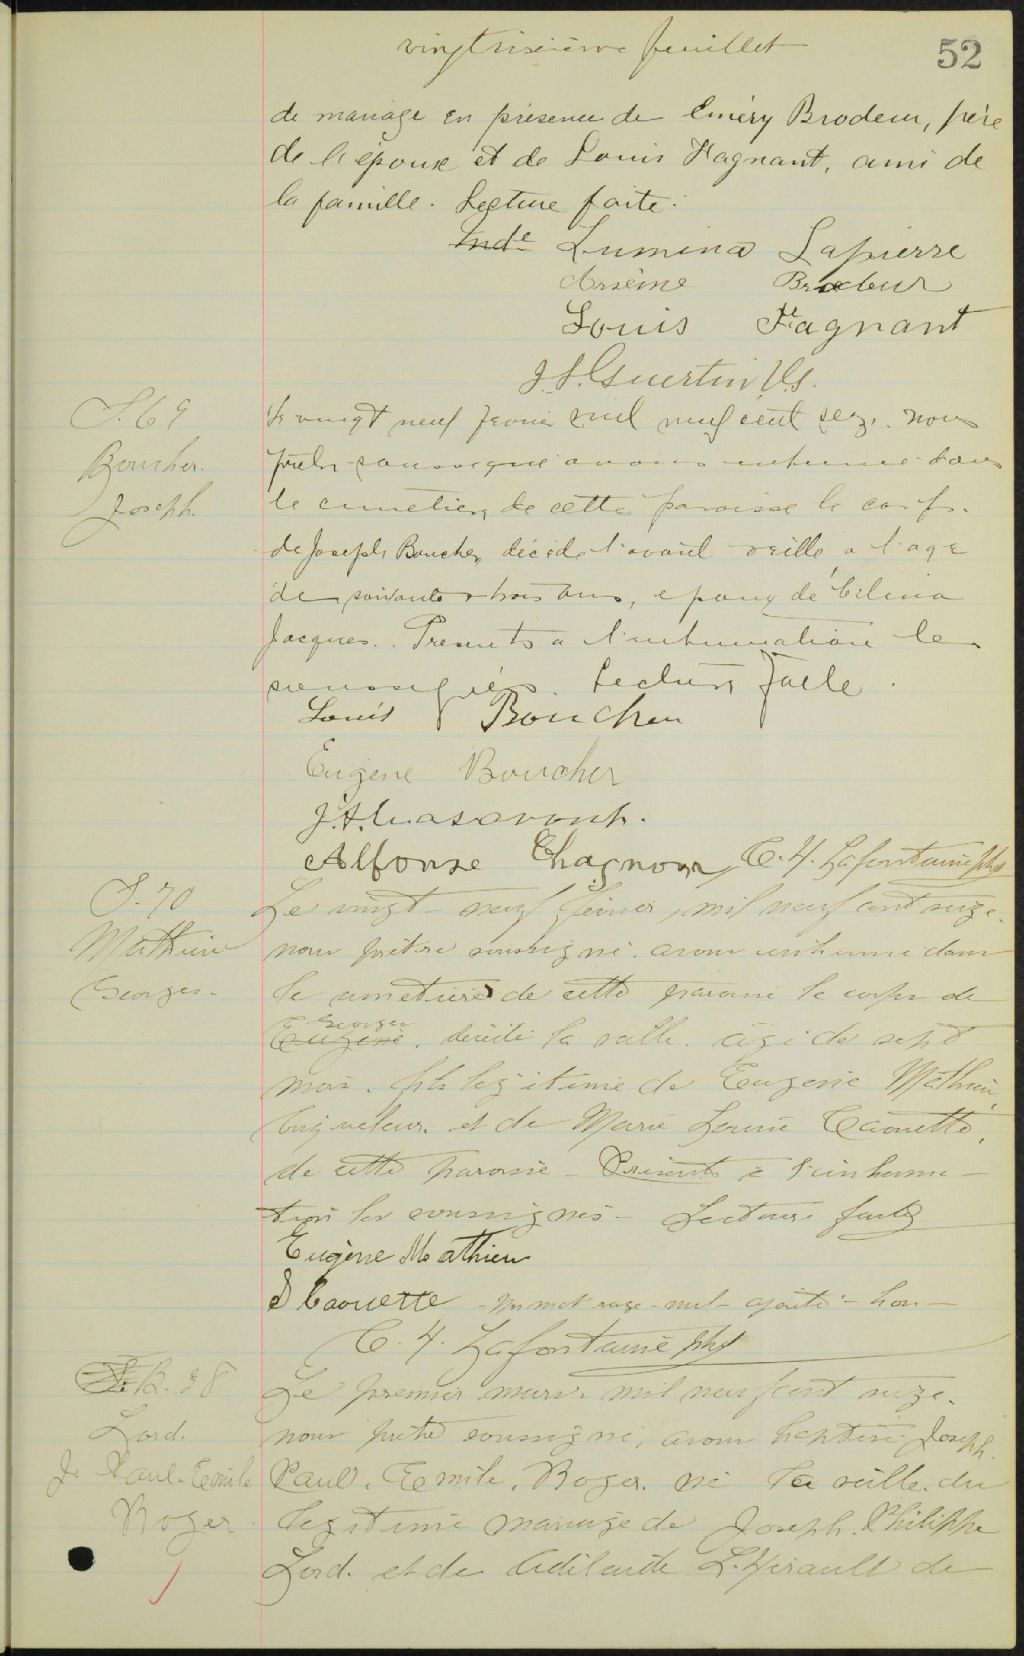 vingtsixième feuillet
52
de mariage en présence de Eméry Brodeur, père
de l'épouse et de Louis Fagnant, ami de
la famille. Lecture faite.
Lumina Lapierre
Arsène Brodeur
Louis Fagnant
J. S. Guertin, V.S.
S. 69
Boucher.
Joseph.
Le vingt neuf fevrier mil neuf cent seize. nous
pretre soussigné avons inhumé dans
le cimetiere de cette paroisse le corps.
de Joseph Boucher, décédé l'avant veille, a l'age
de soixante & trois ans, epoux de Celina
Jacques. Presents a l'inhumation les
soussignés. Lecture faite.
Louis Boucher
Eugène Boucher
J. A.
Alfonse Chagnon C. H. Lafontaine ptre
S. 70
Mathieu
Georges.
Le vingt-neuf février, mil neuf cent seize.
nous prêtre soussigné. avons inhumé dans
le cimetière de cette paroisse le corps de
Georges
Eugène. décédé la veille. agé de sept
mois. fils légitime de Eugène Mathieu,
briqueleur. et de Marie Louise Caouette,
de cette paroisse - Présents à l'inhuma-
tion les soussignés - Lecture faite
Eugène Mathieu
D Caouette - Un mot rayé - nul - ajouté - bon -
C. H. Lafontaine ptre
B. 38
Lord.
J. Paul. Emile
Roger.
Le premier mars. mil neuf cent seize.
nous prêtre soussigné, avons baptisé Joseph.
Paul. Emile. Roger. né la veille. du
légitime mariage de Joseph. Philippe
Lord. et de Adélaide L'Hérault de